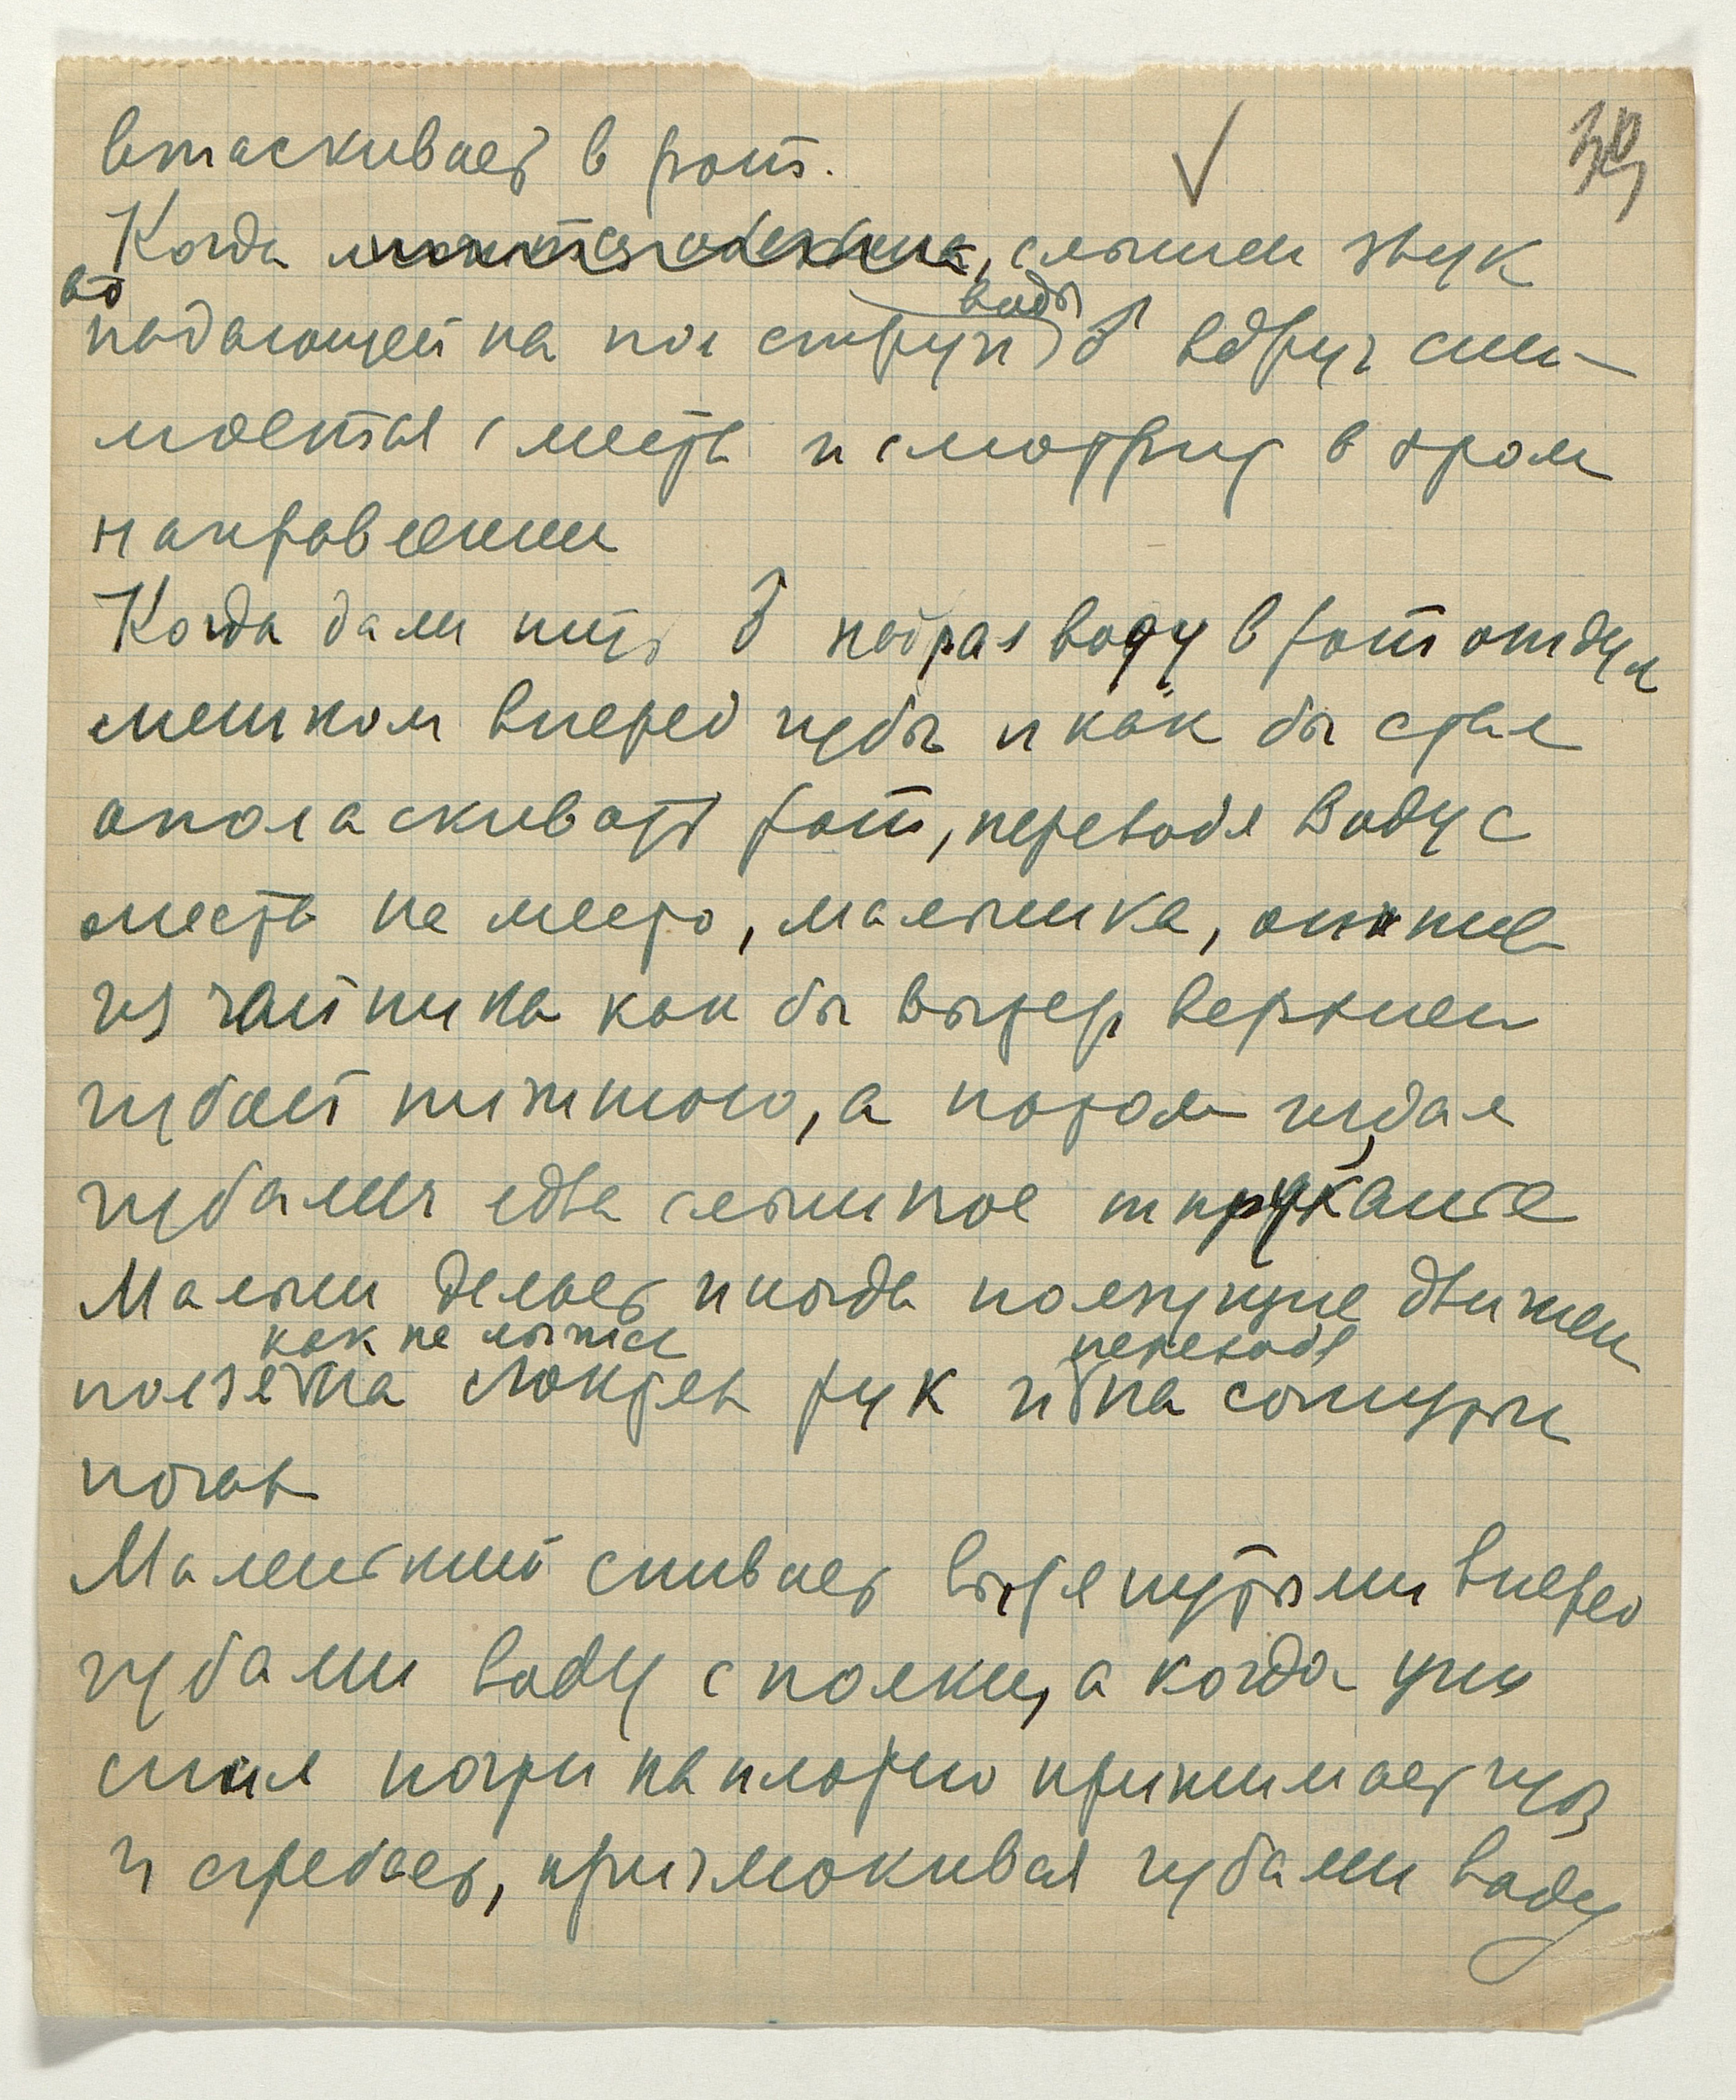 39
втаскивает в рот.
Когда слышен звук
воды
падающей на пол струи, б вдруг сни-
мается с места и смотрит в этом
направлении
Когда дали пить б набрал воду в рот отдул
мешком вперед губы и как бы стал
ополаскивать рот, переводя воду с
места на место, малышка, отпив
из чайника как бы вытер верхней
губой нижнюю, а потом издал
губами едва слышное тпруканье
Малыш делает иногда ползущие движен
как на лыжах переводя
ползет на локтях рук и на согнутых
ногах
Маленький спивает вытянутыми вперед
губами воду с полки, а когда уже
спил почти наплотно прижимает губы
и сгребает, причмокивая губами воду